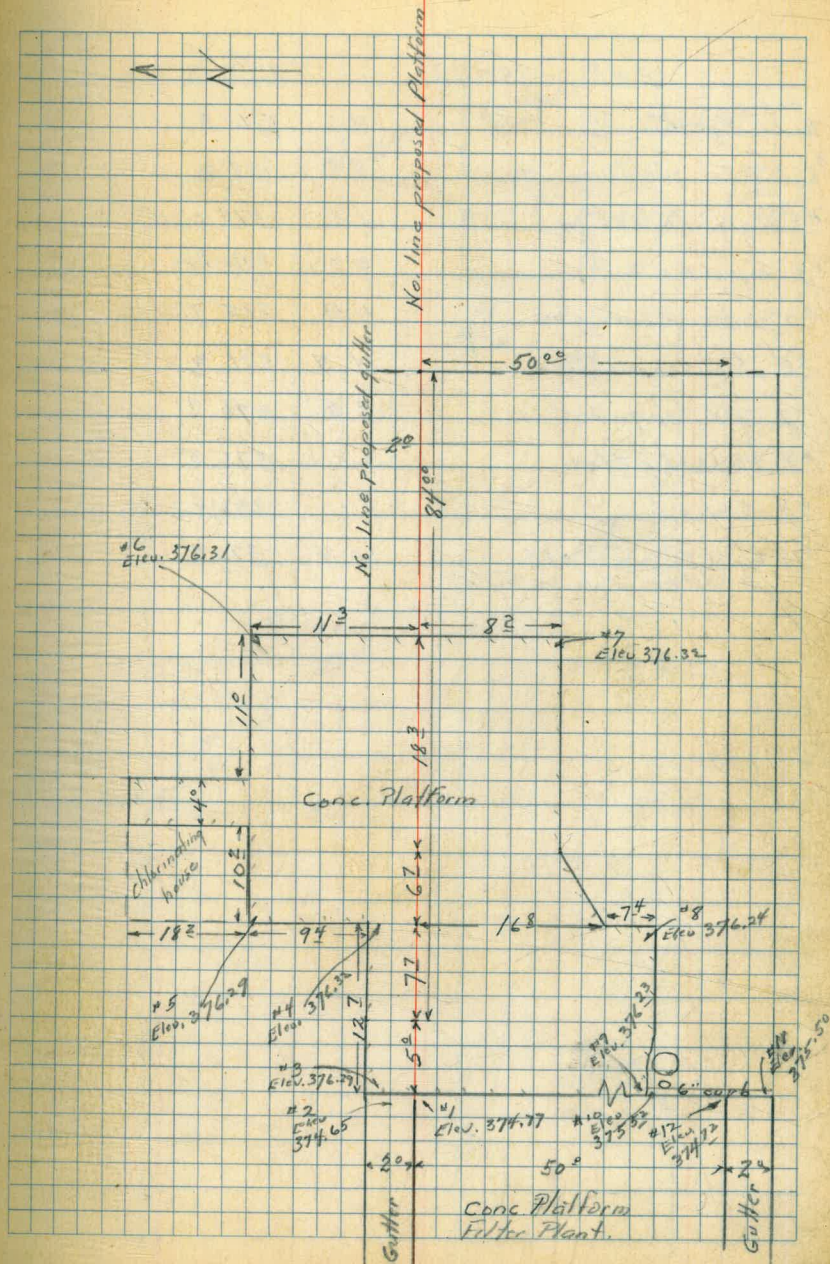 N
No. line proposed Platform
50 00
No. line proposed gutter
2 0
84 00
#6
Elev. 376.31
11 3
8 2
#7
Elev 376.32
11 0
18 3
4 0
Conc. Platform
chlorinating
house
10 2
6 7
7 4
#8
Elev 376.24
18 2
9 4
16 8
7 7
#5
Elev. 376.29
#4
Elev. 376.32
12 7
#9
Elev. 376.23
5 0
#3
Elev. 376.29
6" curb
Elev.
375.50
#2
Elev
374.65
#1
Elev. 374.77
#10
Elev
375.52
#12
Elev
374.72
2 0
50 0
2 0
Gutter
Conc. Platform
Filter Plant.
Gutter